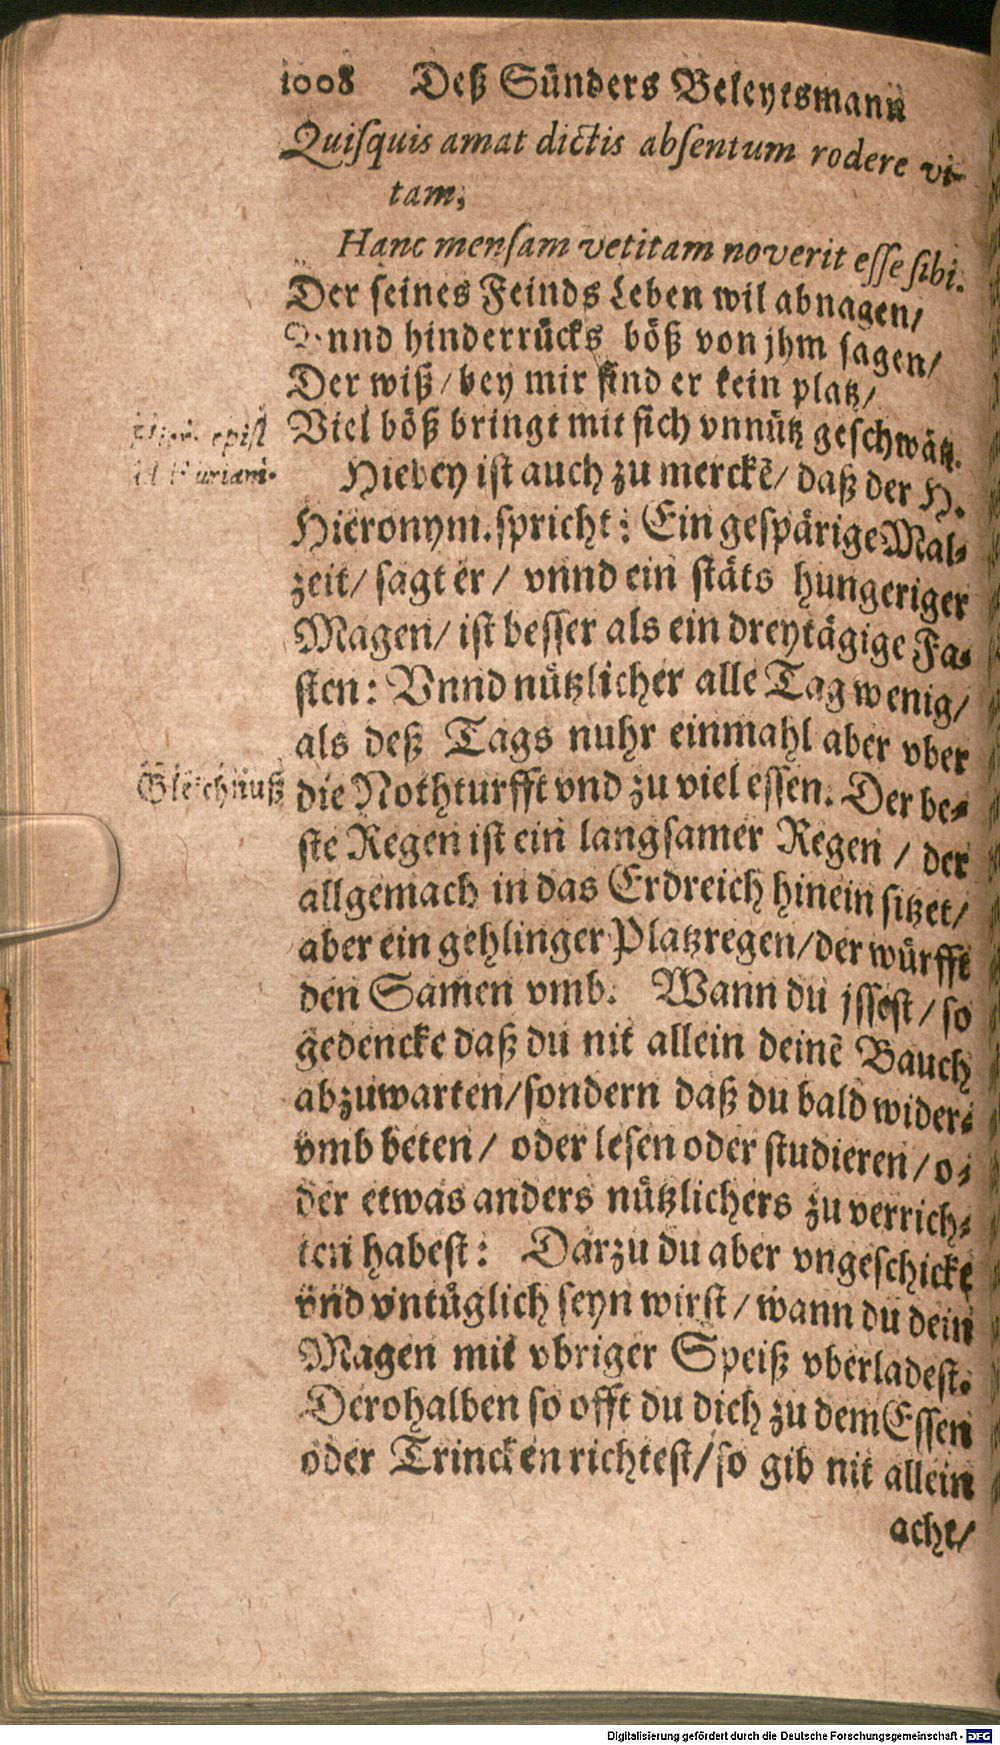 1008 Deß Sünders Beleytsmann
Quiſquis amat dictis abſentum rodere vi-
tam,
Hanc menſam vetitam noverit eſſe ſibi.
Der ſeines Feinds Leben wil abnagen/
Vnnd hinderruͤcks boͤß von jhm ſagen/
Der wiß/ bey mir find er kein platz/
Viel boͤß bringt mit ſich vnnuͤtz geſchwaͤtz.
epiſt.
Hiebey iſt auch zu merckē/ daß der H.
Hieronym. ſpricht: Ein geſpaͤrige Mal-
zeit/ ſagt er/ vnnd ein ſtaͤts hungeriger
Magen/ iſt beſſer als ein dreytaͤgige Fa-
ſten: Vnnd nuͤtzlicher alle Tag wenig/
als deß Tags nuhr einmahl aber vber
Gleichnuß
die Nothturfft vnd zu viel eſſen. Der be-
ſte Regen iſt ein langſamer Regen/ der
allgemach in das Erdreich hinein ſitzet/
aber ein gehlinger Platzregen/ der wuͤrfft
den Samen vmb. Wann du jſſeſt/ ſo
gedencke daß du nit allein deinē Bauch
abzuwarten/ ſondern daß du bald wider-
vmb beten/ oder leſen oder ſtudieren/ o-
der etwas anders nuͤtzlichers zu verrich-
ten habeſt: Darzu du aber vngeſchickt
vnd vntuͤglich ſeyn wirſt/ wann du dein
Magen mit vbriger Speiß vberladeſt.
Derohalben ſo offt du dich zu dem Eſſen
oder Trincken richteſt/ ſo gib nit allein
acht/
Digitalisierung gefördert durch die Deutsche Forschungsgemeinschaft - DFG